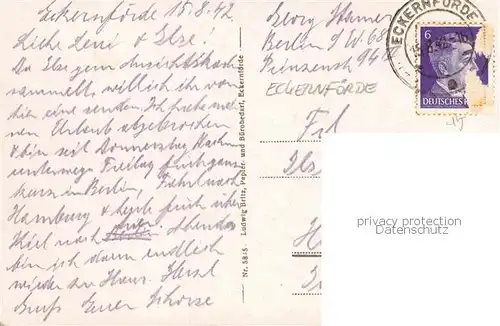 Eckernförde 15.8.42
Liebe Leni & Else!
Da Else gern Ansichtskarten
sammelt, will ich ihr von
hier eine senden. Ich habe mein
Urlaub abgebrochen
& bin seit Donnerstag
unterwegs Freitag früh ganz
kurz in Berlin, Fuhr nach
Hamburg & heute früh über
Kiel nach
bin ich dann endlich
wieder zu Haus. Herzl
Gruß Euer
Ludwig Britz, Papier- und Bürobedarf, Eckernförde
Nr. 5815
Georg
Berlin SW 68
Prinzenstr 94
ECKERNFÖRDE
Frl
ECKERNFÖRDE
6
DEUTSCHES
privacy protection
Datenschutz